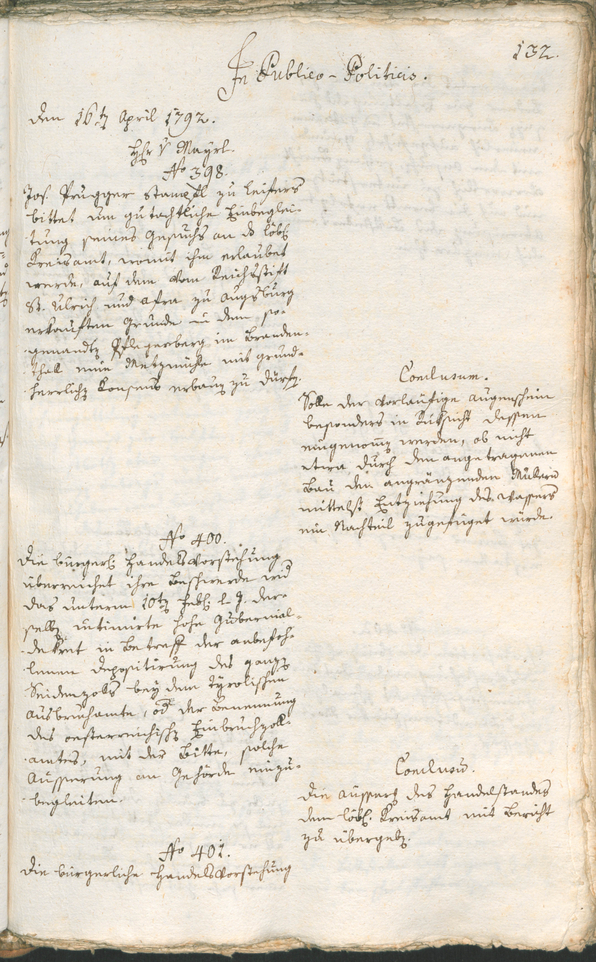 132.
In Publico-Politicis.
den 16t April 1792.
Hr v Mayrl.
No 398.
Jos. Prugger Stampfl zu Leifers
bittet um gutachtliche Einbeglei-
tung seines Gesuchs an das löbl
Kreisamt, womit ihm erlaubet
werde, auf dem vom Reichsstift
St. Ulrich und Afra zu Augsburg
erkauften Grunde in dem so-
genandten Pflegerberg im Branden-
thall eine Metzmühle mit grund-
herrlichen Konsens erbaun zu dürfen.
Conclusum.
Solle der vorläufige Augenschein
besonders in Rüksicht dessen
eingenommen werden, ob nicht
etwa durch den angetragenen
Bau den angränzenden Müllern
mittelst Entziehung des Wassers
ein Nachteil zugefüget würde.
No 400.
Die bürgerl Handelsvorstehung
überreichet ihre Beschwerde wid
das unterm 10t Febr l. J. der-
selben intimirte hohe Gubernial-
dekret in Betreff der anbefoh-
lenen Depositirung des ganzen
Seidenzolls bey dem tyrolischen
Ausbruchamte, od der Benennung
des oesterreichischen Einbruchzoll-
amtes, mit der Bitte, solche
Aüsserung an Gehörde einzu-
begleiten.
Conclusum.
Die Aüsserung des Handelstandes
dem löbl. Kreisamt mit Bericht
zu übergeben.
No 401.
Die bürgerliche Handelsvorstehung